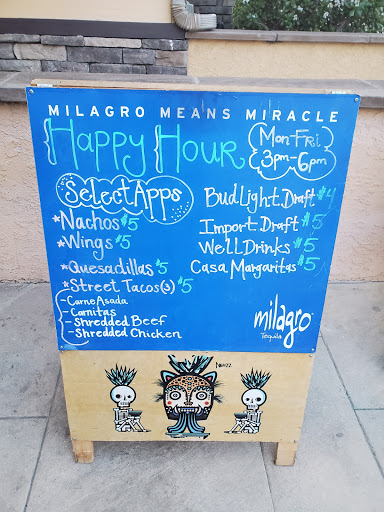 MILAGRO MEANS MIRACLE
Happy Hour
Mon Fri
3pm-6pm
Select Apps
*Nachos $5
*Wings $5
*Quesadillas $5
*Street Tacos(3) $5
-Carne Asada
-Carnitas
-Shredded Beef
-Shredded Chicken
Bud Light Draft $4
Import Draft $5
Well Drinks $5
Casa Margaritas $5
milagro
Tequila